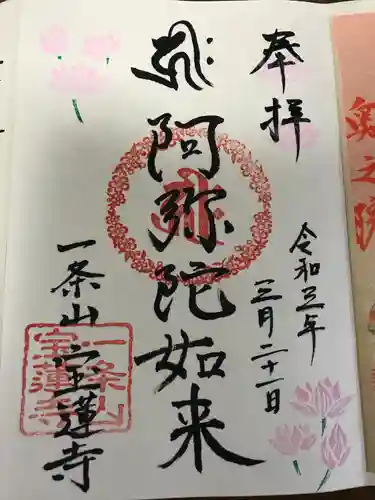 奉拝
令和三年
三月二十一日
阿弥陀如来
一条山
宝蓮寺
一条山
宝蓮寺
奥之院